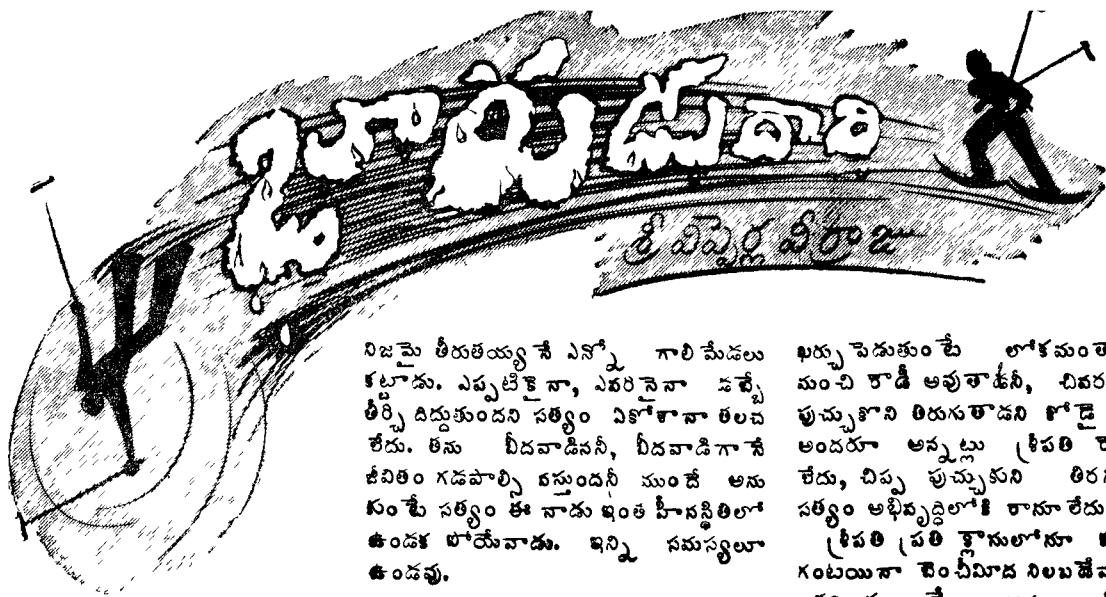 జారుడుదారి
శ్రీ విప్పెర్ల వీర్రాజు
నిజమై తీరుతయ్యనే ఎన్నో గాలి మేడలు
కట్టాడు. ఎప్పటికైనా, ఎవరినైనా డబ్బే
తీర్చి దిద్దుతుందని సత్యం ఏకోశానా తలచ
లేదు. తను బీదవాడిననీ, బీదవాడిగానే
జీవితం గడపాల్సి వస్తుందనీ ముందే అను
కుంటే సత్యం ఈ నాడు ఇంత హీనస్థితిలో
ఉండక పోయేవాడు. ఇన్ని సమస్యలూ
ఉండవు.
ఖర్చు పెడుతుంటే లోకమంత
మంచి రౌడీ అవుతాడనీ, చివర
పుచ్చుకొని తిరుగుతాడని కోడై
అందరూ అన్నట్లు శ్రీపతి రౌ
లేదు, చిప్ప పుచ్చుకుని తిరగ
సత్యం అభివృద్ధిలోకి రానూ లేదు
శ్రీపతి ప్రతి క్లాసులోనూ
గంటయినా బెంచీమీద నిలబడే